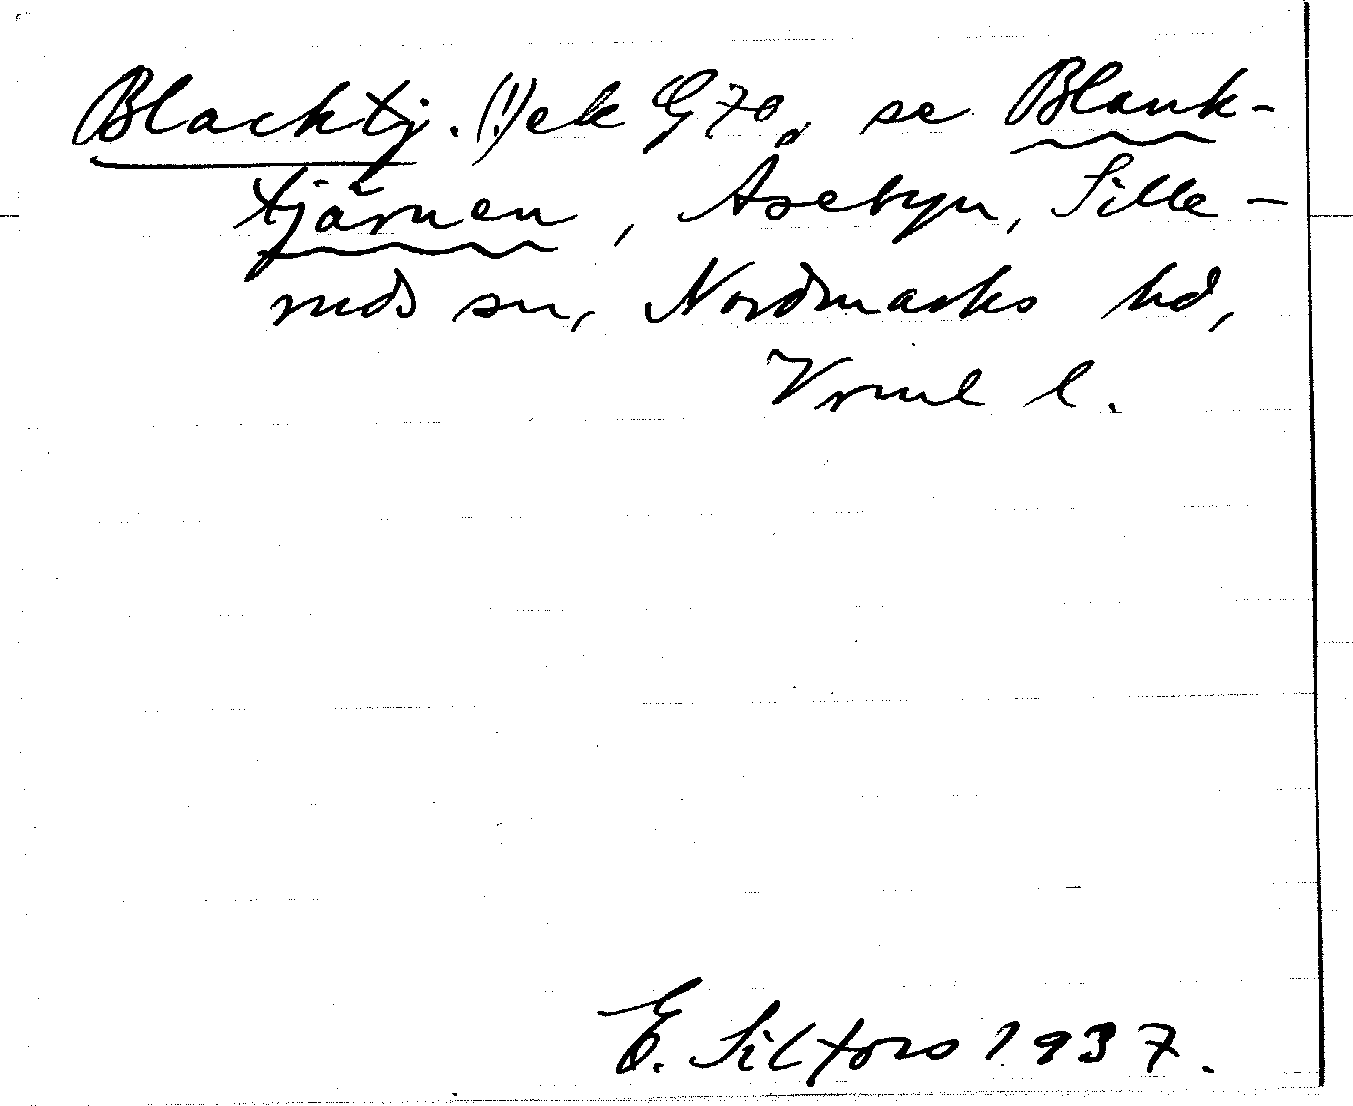 Blacktj. (!) ek G 70, se Blank-
tjärnen, Åsebyn, Sille-
ruds sn, Nordmarks hd,
Vrml l.
E. Silfors 1937.